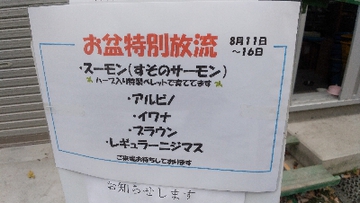 お盆特別放流 8月11日
～16日
・スーモン(すそのサーモン)
ハーブ入り特製ペレットで育ててます
・アルビノ
・イワナ
・ブラウン
・レギュラーニジマス
ご来場お待ちしております
お知らせします